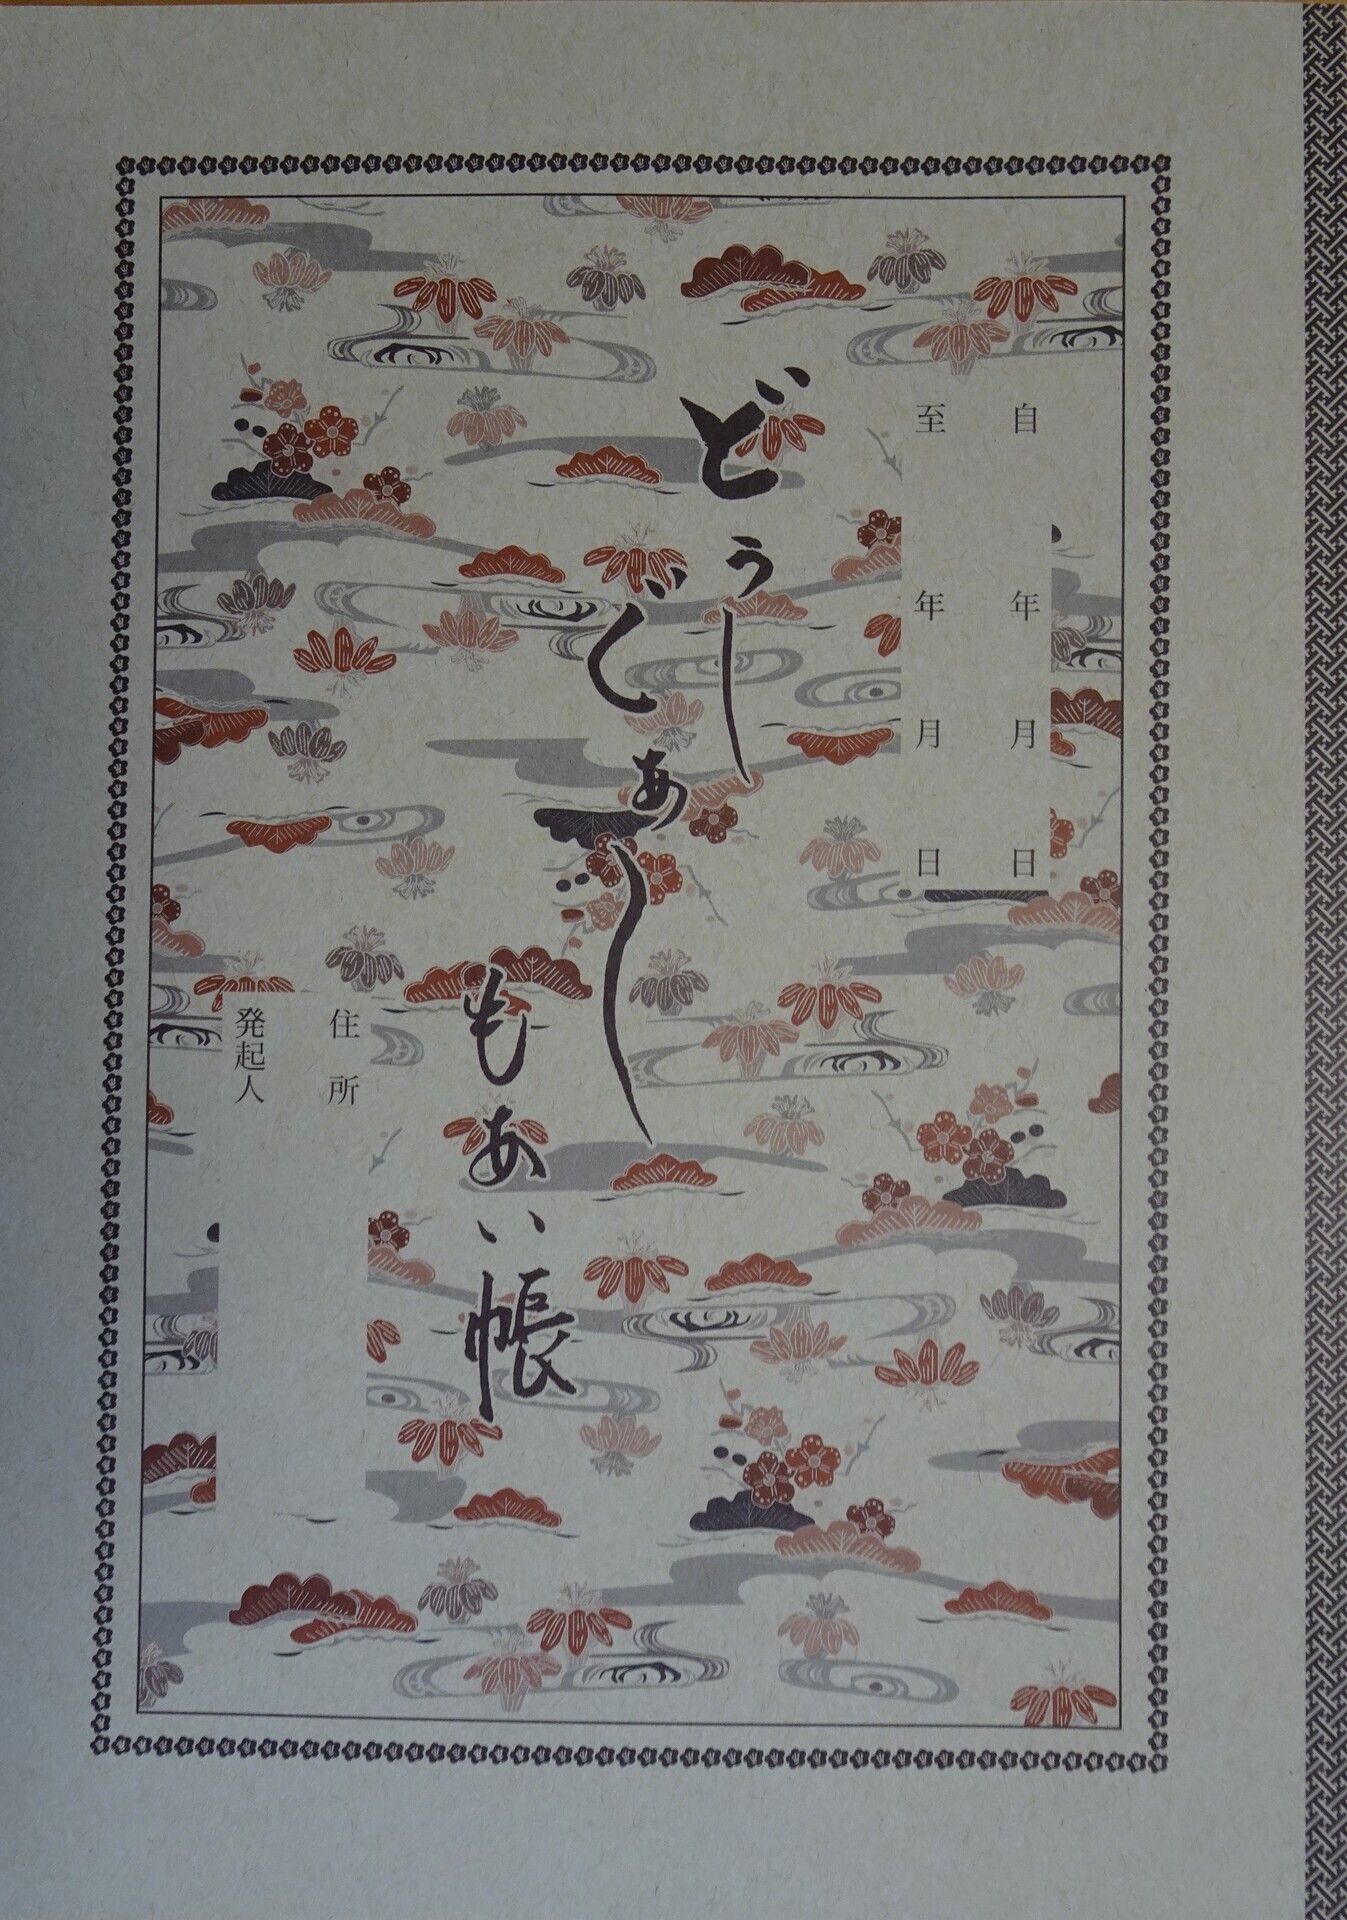 自 年 月 日
至 年 月 日
どぅし
ぐゎーし
もあい帳
住所
発起人